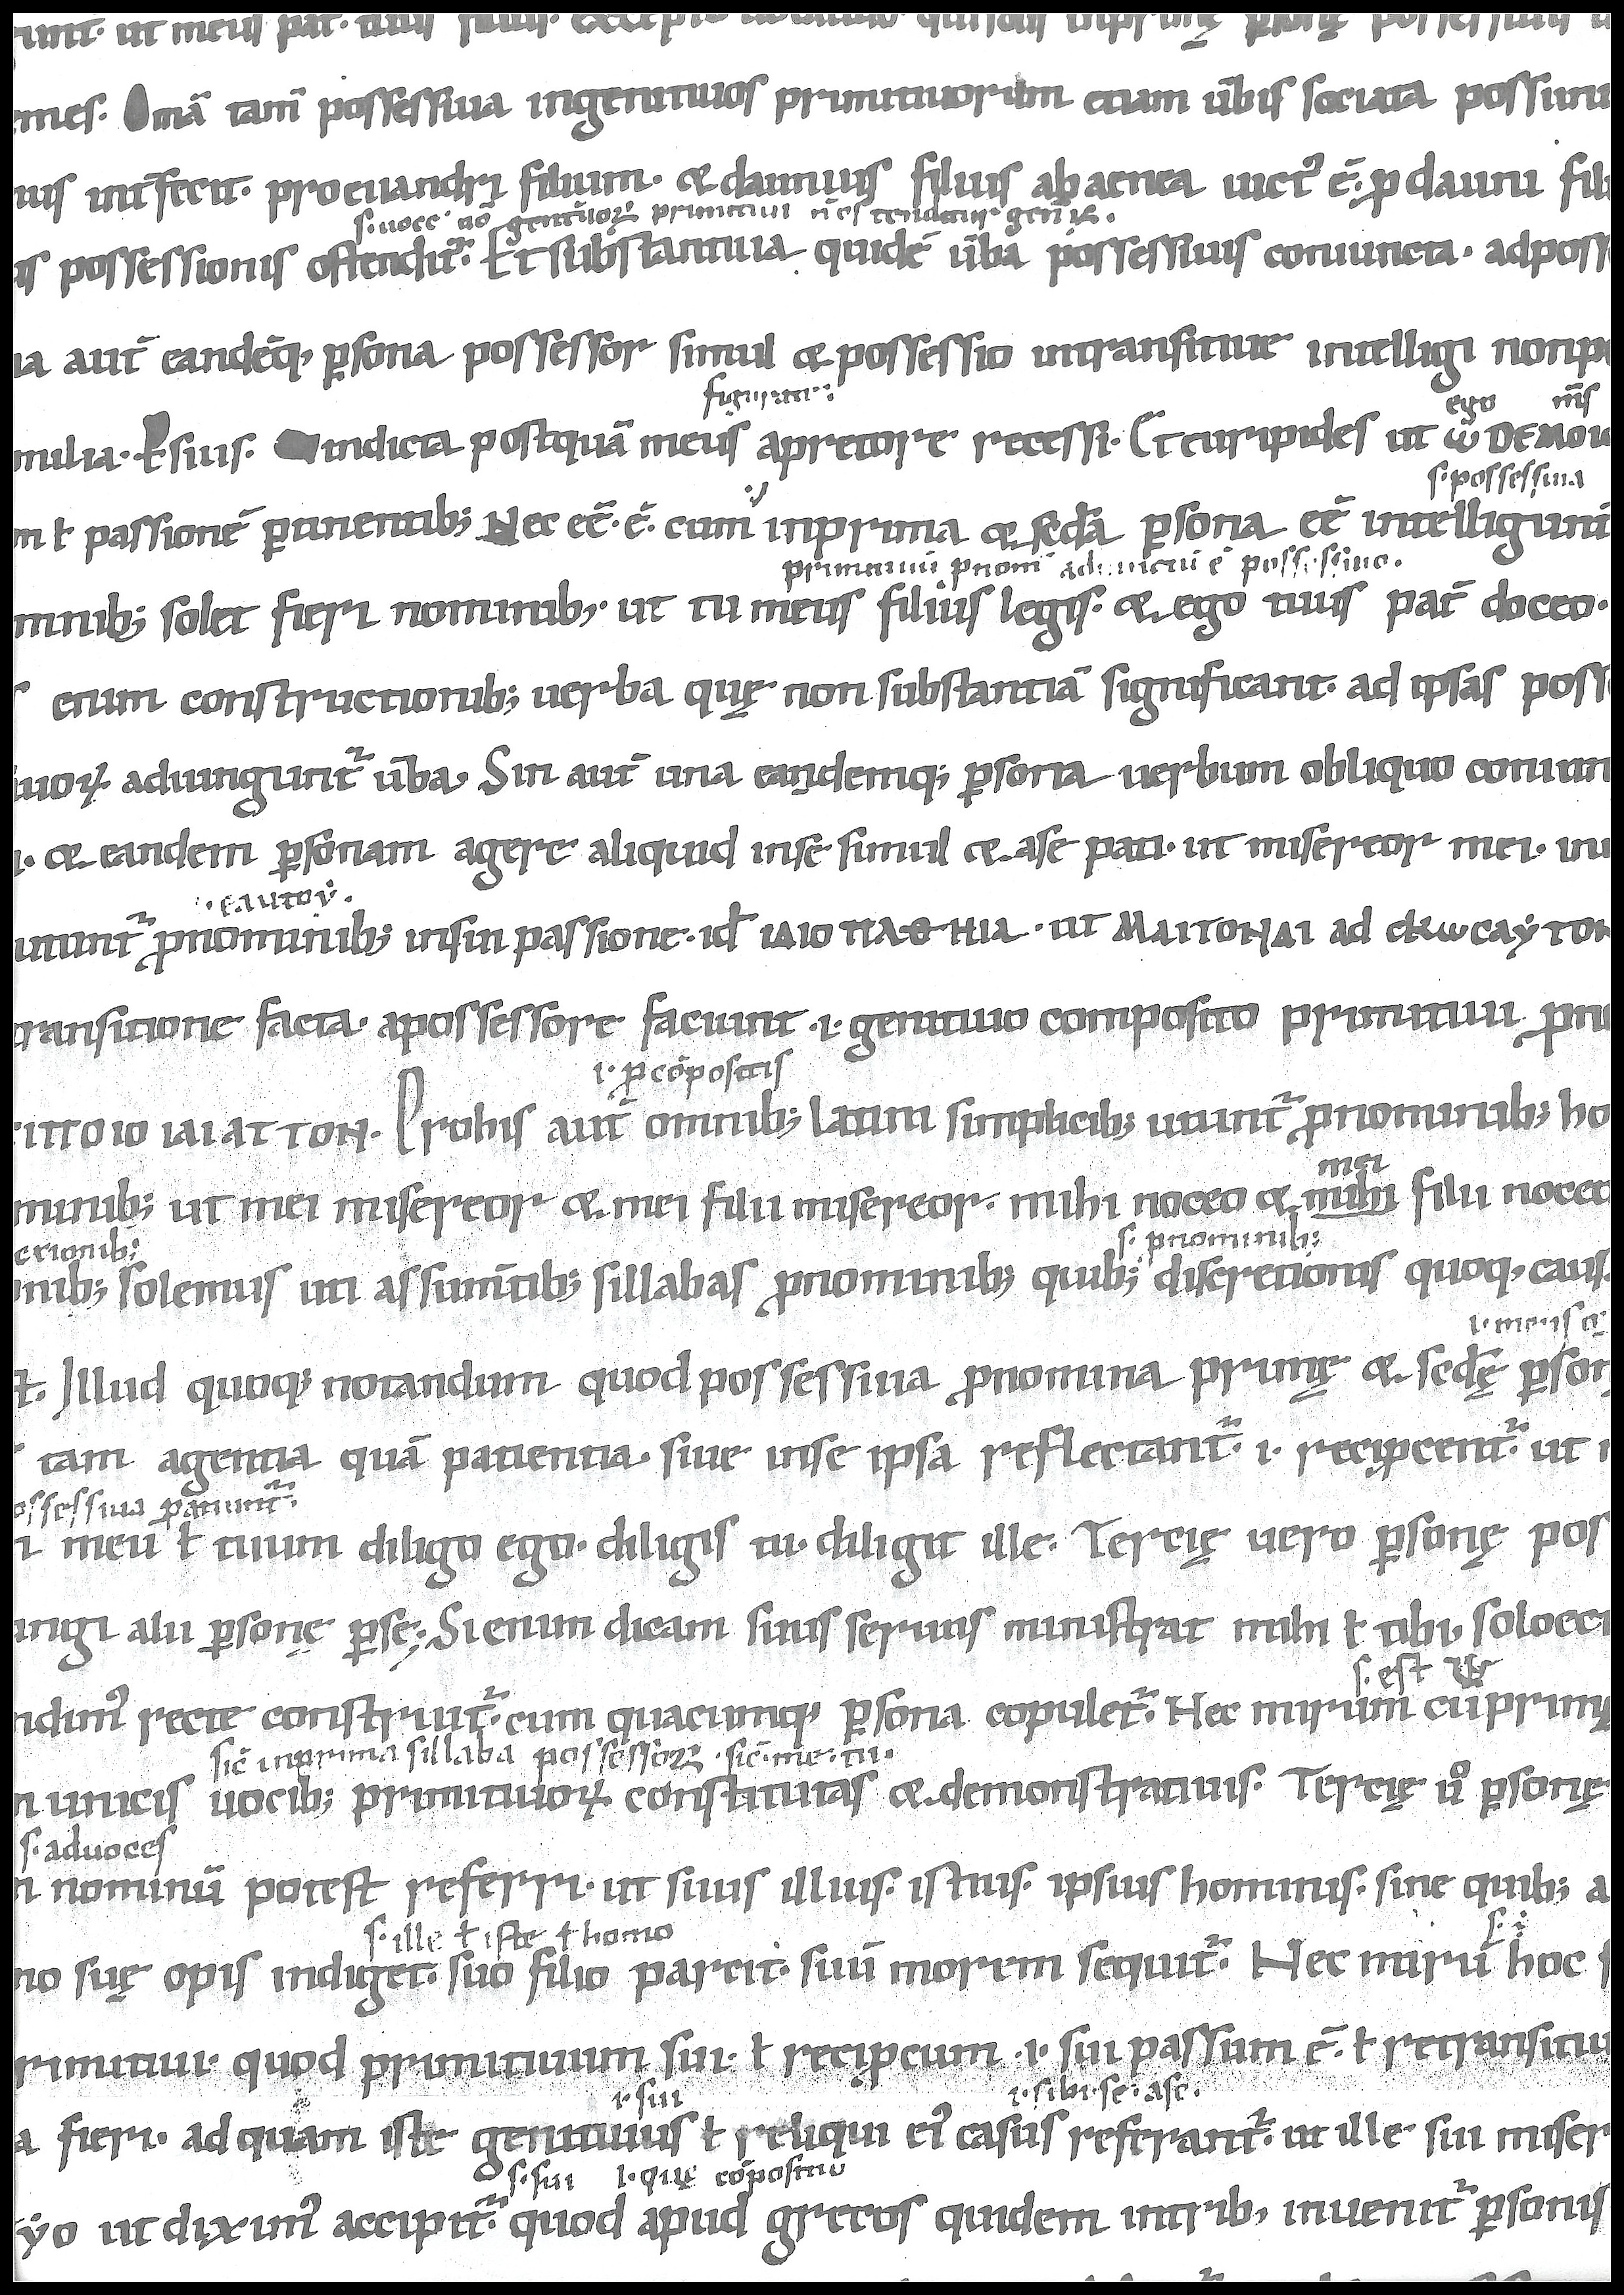 unt· ut meus pat̄· tuus filius· excepto uocatiuo· qui solus inprimę p̱sonę possessiuis
mes· Om̄ā tam̄ possessiua ingenitiuos primitiuorum etiam ūbis sociata possunt
uis int̄fecit· pro euandri filium· & daunuis filius ab aenea uict᾽ ē· p̱ dauni fili
s· uoce
is possessionis ostendit᷑· Et substantiua quidē ūba possessiuis coniuncta· adposs
ia aut̄ eandēq; p̱sona possessor simul & possessio intransitiue intelligi nonpo
figurate·
ego m̄s
milia· Ł suis· indicta postquā meus apretore recessi· Et euripides ut ω̄ ΔΕΜΟΙ
s·possessiua
m ł passionē p̱tinentib; Nec eē· ē· cum inprima & sed̄a p̱sona eē intelligunt
primitiuū p̱nom̄ adiunctū ē possessiuo·
mnib; solet fieri nominib;· ut tu meus filius legis· & ego tuus pat̄ doceo·
enim constructionib; uerba quę non substantiā significant· ad ipsas poss
uoꝝ adiungunt᷑ ūba, Sin aut̄ una eandemq; p̱sona uerbum obliquo coniun
i· & eandem p̱sonam agere aliquid inse simul & ase pati· ut misereor mei· ut
·εαυτου·
utunt᷑ p̱nominib; insui passione· id̄ ΙΔΙΟΠΑΘΗΙΑ· ut ΜΑΙΤΟΝΔΙ ad
ransitione facta· apossessore faciunt ·i· genitiuo composito primitiui p̱n
i· p̱ cōpositis
ΙΤΤΟ ΙΟ ΙΑΙ ΑΤ ΤΟΝ· Prohis aut̄ omnib; latini simplicib; utunt᷑ p̱nominib; ho
mei
minib; ut mei misereor & mei filii misereor· mihi noceo & mihi filii noceo
exionib;
s· p̱nominib;
nib; solemus uti assum̄tib; sillabas p̱nominib; quib; discretionis quoq; caus
i· meus &
t· Illud quoq; notandum quod possessiua p̱nomina primę & sed̄ę p̱son
tam agentia quā patientia· siue inse ipsa reflectant᷑· i· recip̱cent᷑· ut
ossessiua patiunt᷑·
meū ł tuum diligo ego· diligis tu· diligit ille· Tercię uero p̱sonę pos
ungi alii p̱sonę p̱se; Si enim dicam suus seruus ministrat mihi ł tibi, soloeci
s· est
ndim᾽ recte construit᷑· cum quacumq; p̱sona copulet᷑· Nec mirum cū prim
sic̄ inprima sillaba possessoꝝ· sic̄· me· tu·
n unicis uocib; primitiuoꝝ constitutas & demonstratiuis· Tercię ů p̱sonę
s· aduoces
n nominū potest referri· ut suus illius· istius· ipsius hominis· sine quib; a
s· ille ł iste ł homo
no suę opis indiget· suo filio parcit· suū morem sequit᷑· Nec mirū hoc
rimitiui· quod primitiuum sui· ł recip̱cum ·i· sui passum ē· ł retransitiu
i· sui
i· sibi· se· ase·
a fieri· ad quam iste genitiuus ł reliqui ei᾽ casus referant᷑· ut ille sui miser
s· sui i· quę cōpositiuo
yo ut dixim᾽ accipit᷑· quod apud grecos quidem intrib; inuenit᷑ p̱sonis